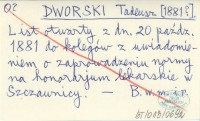 O2 DWORSKI Tadeusz [1881?]
List otwarty z dn. 20 paźdz.
1881 do kolegów z uwiadomie-
niem o zaprowadzeniu normy
na honorarjum lekarskie w
Szczawnicy. — B. w. m. i r.